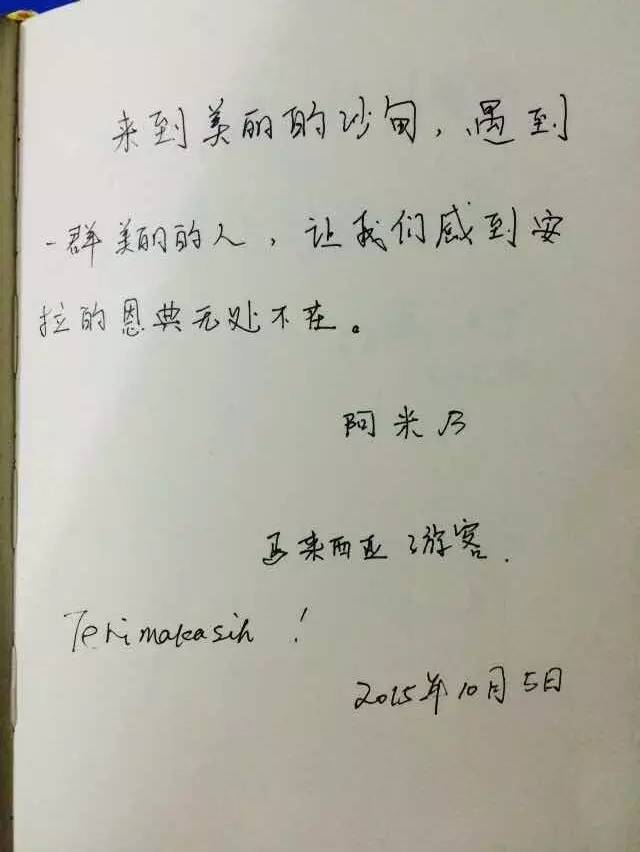 来到美丽的沙甸，遇到
一群美丽的人，让我们感到安
拉的恩典无处不在。
阿米乃
马来西亚游客.
Terimakasih !
2015年10月5日